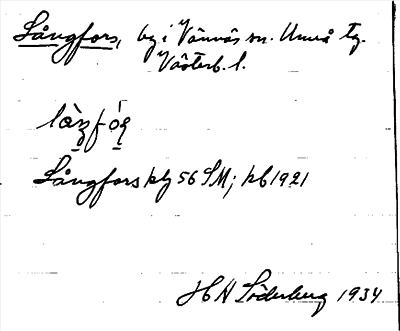 Långfors, by i Vännäs sn. Umeå tg.
Västerb. l.
Långfors kbg 56 SM; kb 1921
H A Söderberg 1934